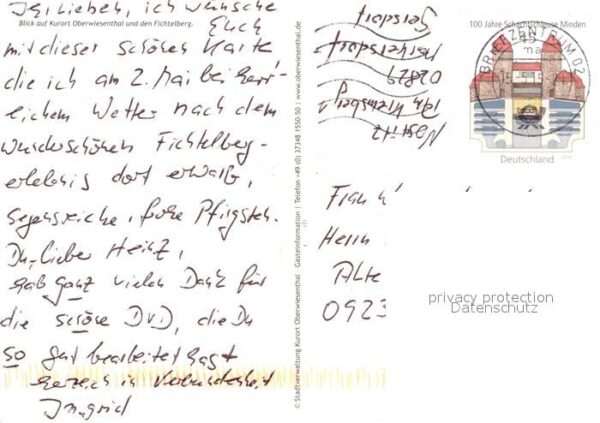 Ihr Lieben, ich wünsche
Euch
Blick auf Kurort Oberwiesenthal und den Fichtelberg.
mit dieser schönen Karte
die ich am 2. Mai bei herr-
lichem Wetter nach dem
wunderschönen Fichtelberg-
erlebnis dort erwarb,
segensreiche, frohe Pfingsten.
Du, lieber Heinz,
hab ganz vielen Dank für
die schöne DVD, die Du
so gut bearbeitet hast
herzlich in Verbundenheit
Ingrid
© Stadtverwaltung Kurort Oberwiesenthal Gästeinformation | Telefon +49 (0) 37348 1550-50 | www.oberwiesenthal.de
02829
100 Jahre Schachtschleuse Minden
BRIEFZENTRUM 02
Deutschland
Frau
Herrn
Alte
0923
privacy protection
Datenschutz